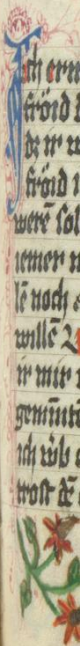 Ich ern
fröid
dz ir w
fröid
were sol
iemer
le noch
wille
ir mir
gemüte
ich wb
trost